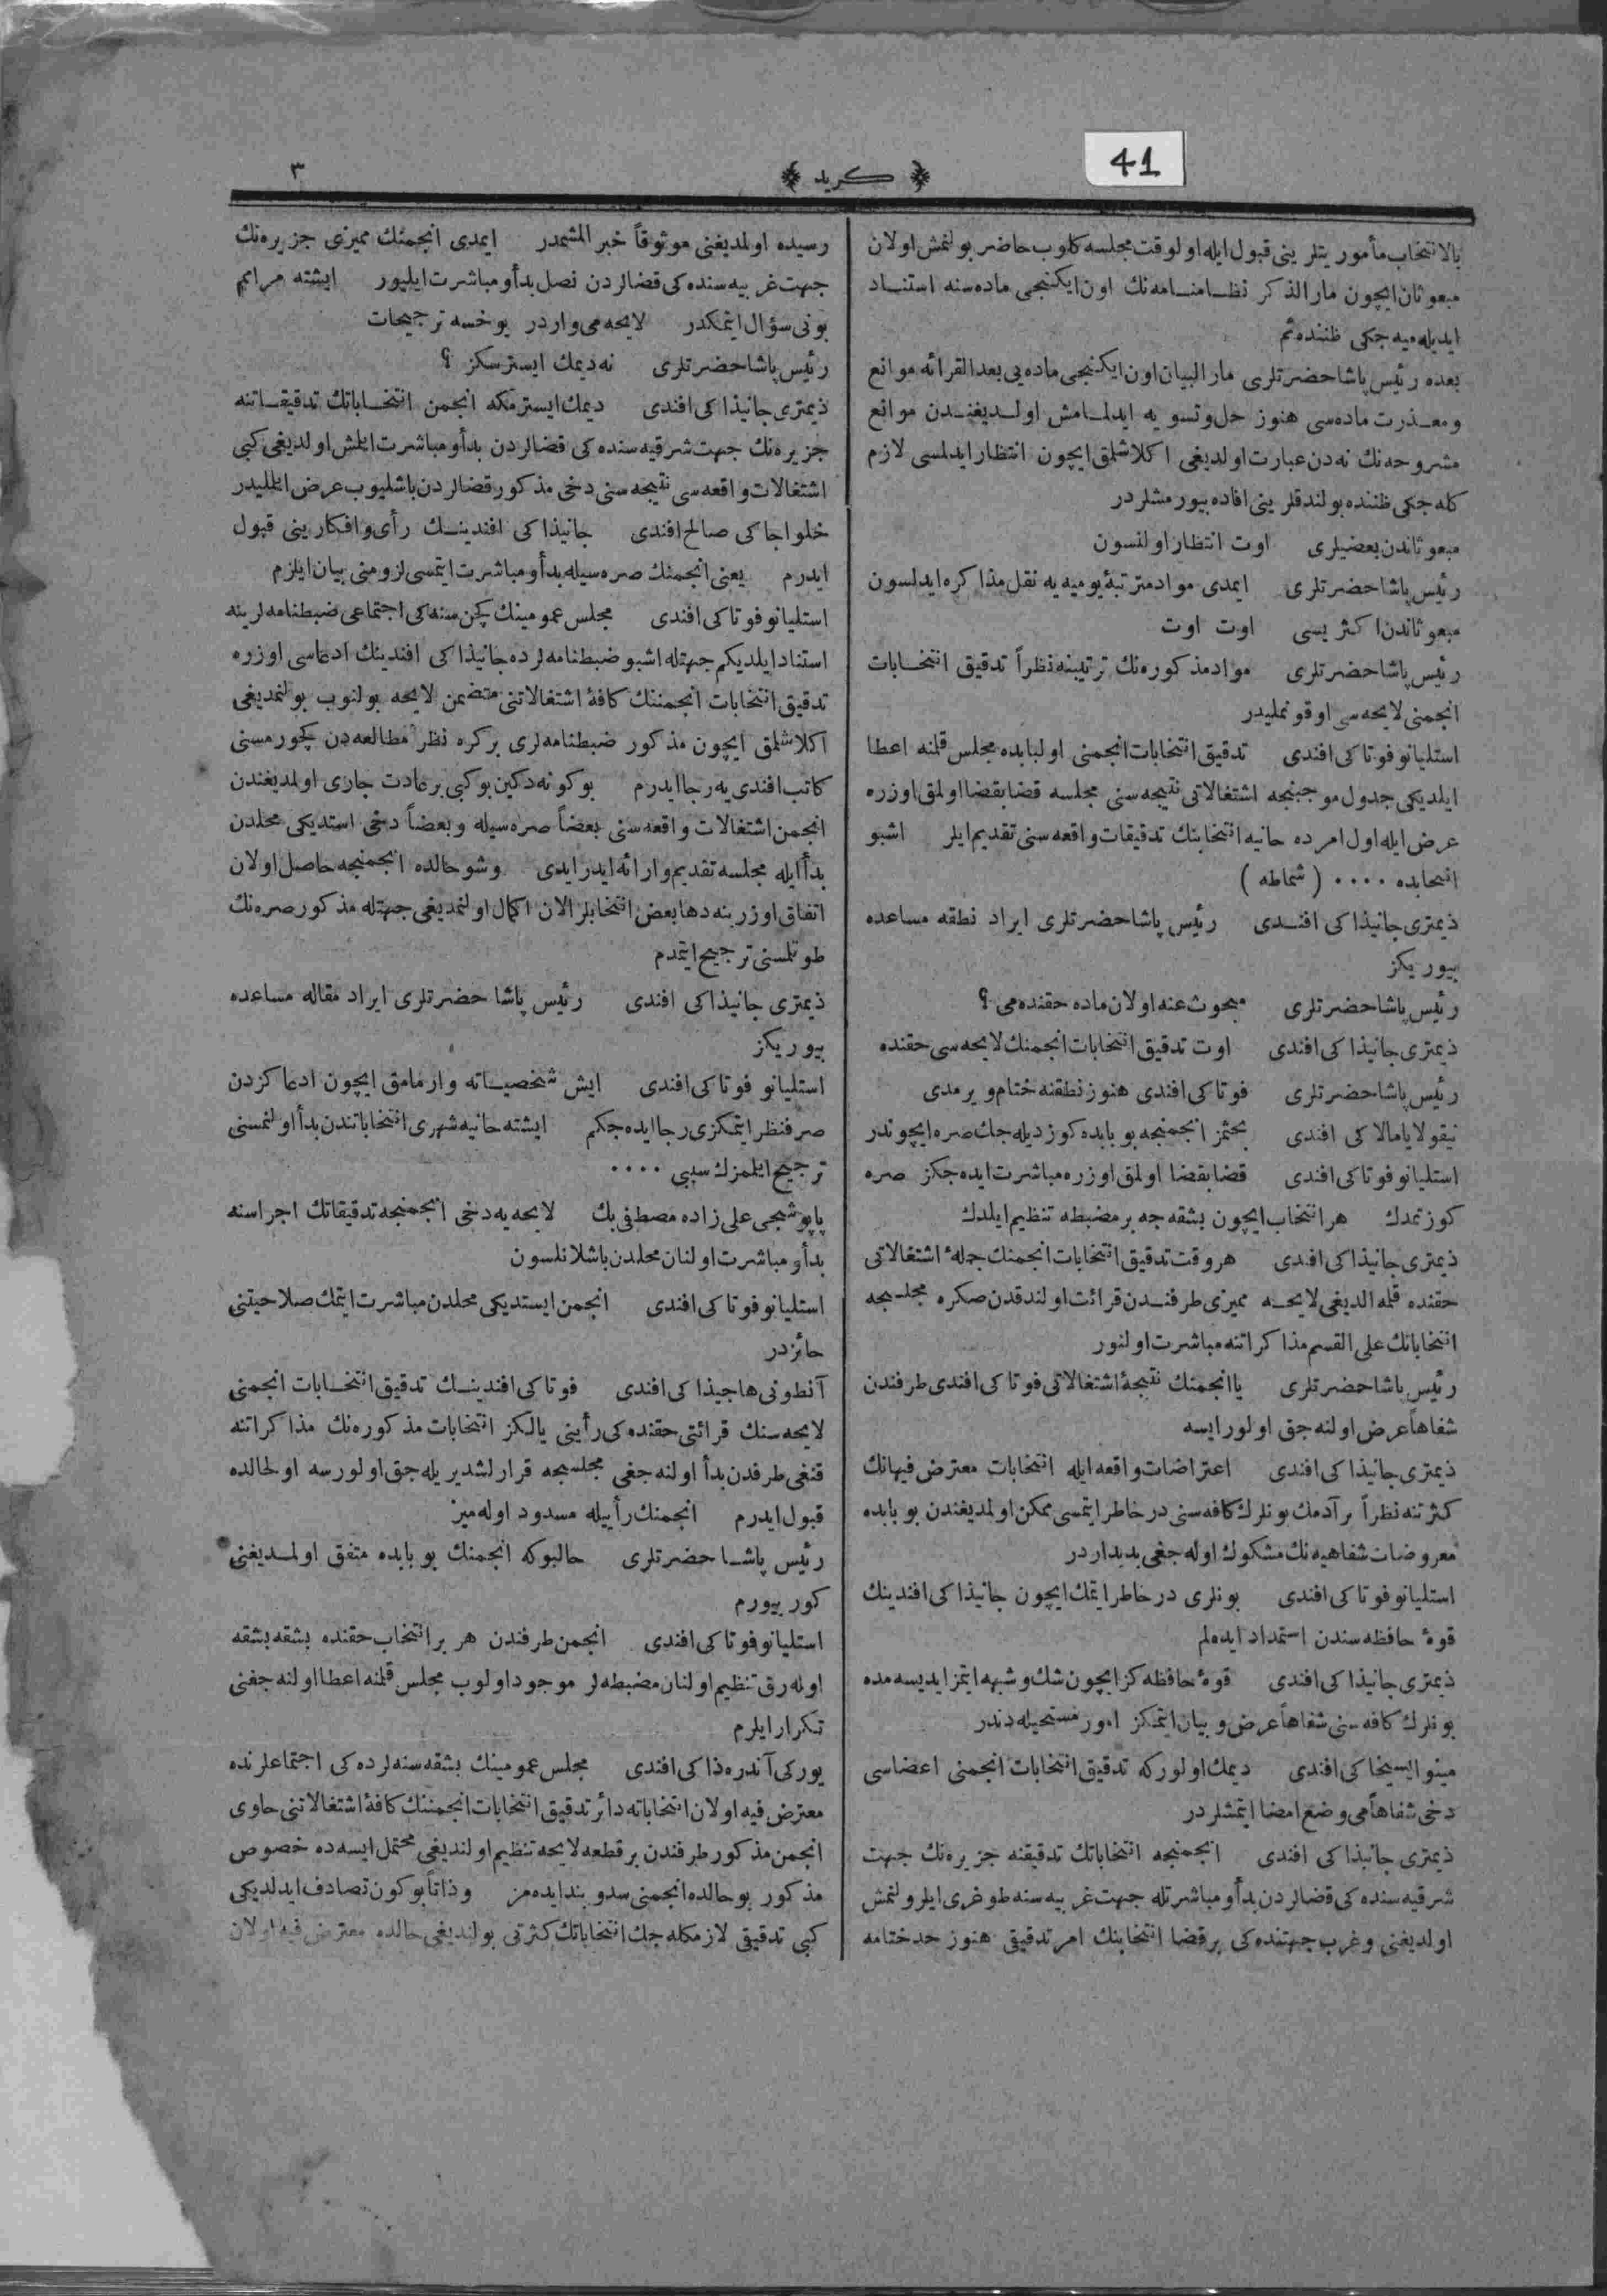 41
﴿ كريد ﴾
٣
بالانتخاب مأموريتلرينى قبول ايله اولوقت مجلسه كلوب حاضر بولنمش اولان
مبعوثان ايچون مارالذكر نظامنامه‌نك اون ايكنجى ماده‌سنه استناد
ايديله‌ميه‌جكى ظننده‌ئم
بعده رئيس پاشا حضرتلرى مارالبيان اون ايكنجى ماده‌يى بعدالقرائه موانع
ومعذرت ماده‌سى هنوز حل وتسويه ايدلمامش اولديغندن موانع
مشروحه‌نك نه‌دن عبارت اولديغى اكلاشلمق ايچون انتظار ايدلمسى لازم
كله‌جكى ظننده بولندقلرينى افاده بيورمشلردر
مبعوثاندن بعضيلرى اوت انتظار اولنسون
رئيس پاشا حضرتلرى ايمدى مواد مترتبهٔ يوميه‌يه نقل مذاكره ايدلسون
مبعوثاندن اكثريسى اوت اوت
رئيس پاشا حضرتلرى مواد مذكوره‌نك ترتيبنه نظراً تدقيق انتخابات
انجمنى لايحه‌سى اوقونمليدر
استليانو فوتاكى افندى تدقيق انتخابات انجمنى اولبابده مجلس قلمنه اعطا
ايلديكى جدول موجبنجه اشتغالاتى نتيجه‌سنى مجلسه قضا بقضا اولمق اوزره
عرض ايله اول امرده حانيه انتخابنك تدقيقات واقعه‌سنى تقديم ايلر اشبو
انتخابده ٠٠٠٠ (شماطه)
ذيمترى جانيذاكى افندى رئيس پاشا حضرتلرى ايراد نطقه مساعده
بيوريكز
رئيس پاشا حضرتلرى مبحوث عنه اولان ماده حقنده‌مى ؟
ذيمترى جانيذاكى افندى اوت تدقيق انتخابات انجمننك لايحه‌سى حقنده
رئيس پاشا حضرتلرى فوتاكى افندى هنوز نطقنه ختام ويرمدى
نيقولا يامالاكى افندى بحثمز انجمنجه بو بابده كوزديله‌جك صره ايچوندر
استليانو فوتاكى افندى قضا بقضا اولمق اوزره مباشرت ايده‌جكز صره
كوزتمدك هر انتخاب ايچون بشقه‌جه بر مضبطه تنظيم ايلدك
ذيمترى جانيذاكى افندى هروقت تدقيق انتخابات انجمننك جملهٔ اشتغالاتى
حقنده قلمه الديغى لايحه مميزى طرفندن قرائت اولندقدن صكره مجلسجه
انتخاباتك على القسم مذاكراتنه مباشرت اولنور
رئيس پاشا حضرتلرى يا انجمنك نتيجهٔ اشتغالاتى فوتاكى افندى طرفندن
شفاهاً عرض اولنه‌جق اولور ايسه
ذيمترى جانيذاكى افندى اعتراضات واقعه ايله انتخابات معترض فيهانك
كثرتنه نظراً بر آدمك بونلرك كافه‌سنى درخاطر ايتمسى ممكن اولمديغندن بو بابده
معروضات شفاهيه‌نك مشكوك اوله‌جغى بديداردر
استليانو فوتاكى افندى بونلرى درخاطر ايتمك ايچون جانيذاكى افندينك
قوهٔ حافظه‌سندن استمداد ايده‌لم
ذيمترى جانيذاكى افندى قوهٔ حافظه‌كز ايچون شك وشبهه ايتمز ايديسه‌مده
بونلرك كافه‌سنى شفاهاً عرض وبيان ايتمكز امور مستحيله‌دندر
مينو ايسيخاكى افندى ديمك اولوركه تدقيق انتخابات انجمنى اعضاسى
دخى شفاهاًمى وضع امضا ايتمشلردر
ذيمترى جانيذاكى افندى انجمنجه انتخاباتك تدقيقنه جزيره‌نك جهت
شرقيه‌سنده‌كى قضالردن بدأ ومباشرتله جهت غربيه‌سنه طوغرى ايلرولنمش
اولديغنى وغرب جهتنده‌كى بر قضا انتخابنك امر تدقيقى هنوز حد ختامه
رسيده اولمديغنى موثوقاً خبر المشمدر ايمدى انجمنك مميزى جزيره‌نك
جهت غربيه‌سنده‌كى قضالردن نصل بدأ ومباشرت ايليور ايشته مرامم
بونى سؤال ايتمكدر لايحه‌مى واردر يوخسه ترجيحات
رئيس پاشا حضرتلرى نه‌ديمك ايسترسكز ؟
ذيمترى جانيذاكى افندى ديمك ايسترمكه انجمن انتخاباتك تدقيقاتنه
جزيره‌نك جهت شرقيه‌سنده‌كى قضالردن بدأ ومباشرت ايلمش اولديغى كبى
اشتغالات واقعه‌سى نتيجه‌سنى دخى مذكور قضالردن باشليوب عرض ايلمليدر
خلواجاكى صالح افندى جانيذاكى افندينك رأى وافكارينى قبول
ايدرم يعنى انجمنك صره‌سيله بدأ ومباشرت ايتمسى لزومنى بيان ايلرم
استليانو فوتاكى افندى مجلس عمومينك كچن سنه‌كى اجتماعى ضبطنامه‌لرينه
استناد ايلديكم جهتله اشبو ضبطنامه‌لرده جانيذاكى افندينك ادعاسى اوزره
تدقيق انتخابات انجمننك كافهٔ اشتغالاتنى متضمن لايحه بولنوب بولنمديغى
اكلاشلمق ايچون مذكور ضبطنامه‌لرى بركره نظر مطالعه‌دن كچورمسنى
كاتب افندى‌يه رجا ايدرم بوكونه‌دكين بوكبى بر عادت جارى اولمديغندن
انجمن اشتغالات واقعه‌سنى بعضاً صره‌سيله وبعضاً دخى استديكى محلدن
بدأ ايله مجلسه تقديم وارائه ايدر ايدى وشو حالده انجمنجه حاصل اولان
اتفاق اوزرينه دها بعض انتخابلر الان اكمال اولنمديغى جهتله مذكور صره‌نك
طوتلمسنى ترجيح ايتمدم
ذيمترى جانيذاكى افندى رئيس پاشا حضرتلرى ايراد مقاله مساعده
بيوريكز
استليانو فوتاكى افندى ايش شخصياته وارمامق ايچون ادعاكزدن
صرفنظر ايتمكزى رجا ايده‌جكم ايشته حانيه شهرى انتخاباتندن بدأ اولنمسنى
ترجيح ايلمزك سببى ٠٠٠٠
پاپوشجى على زاده مصطفى بك لايحه‌يه دخى انجمنجه تدقيقاتك اجراسنه
بدأ ومباشرت اولنان محلدن باشلانلسون
استليانو فوتاكى افندى انجمن ايستديكى محلدن مباشرت ايتمك صلاحيتنى
حائزدر
آنطونى هاجيذاكى افندى فوتاكى افندينك تدقيق انتخابات انجمنى
لايحه‌سنك قرائتى حقنده‌كى رأينى يالكز انتخابات مذكوره‌نك مذاكراتنه
قنغى طرفدن بدأ اولنه‌جغى مجلسجه قرارلشديريله‌جق اولورسه اولحالده
قبول ايدرم انجمنك رأييله مسدود اوله‌ميز
رئيس پاشا حضرتلرى حالبوكه انجمنك بو بابده متفق اولمديغنى
كوربيورم
استليانو فوتاكى افندى انجمن طرفندن هر بر انتخاب حقنده بشقه بشقه
اوله‌رق تنظيم اولنان مضبطه‌لر موجود اولوب مجلس قلمنه اعطا اولنه‌جغنى
تكرار ايلرم
يوركى آندره‌ذاكى افندى مجلس عمومينك بشقه سنه‌لرده‌كى اجتماعلرنده
معترض فيه اولان انتخاباته دائر تدقيق انتخابات انجمننك كافهٔ اشتغالاتنى حاوى
انجمن مذكور طرفندن برقطعه لايحه تنظيم اولنديغى محتمل ايسه‌ده خصوص
مذكور بو حالده انجمنى سد وبند ايده‌مز وذاتاً بوكون تصادف ايدلديكى
كبى تدقيقى لازمكله‌جك انتخاباتك كثرتى بولنديغى حالده معترض فيه اولان